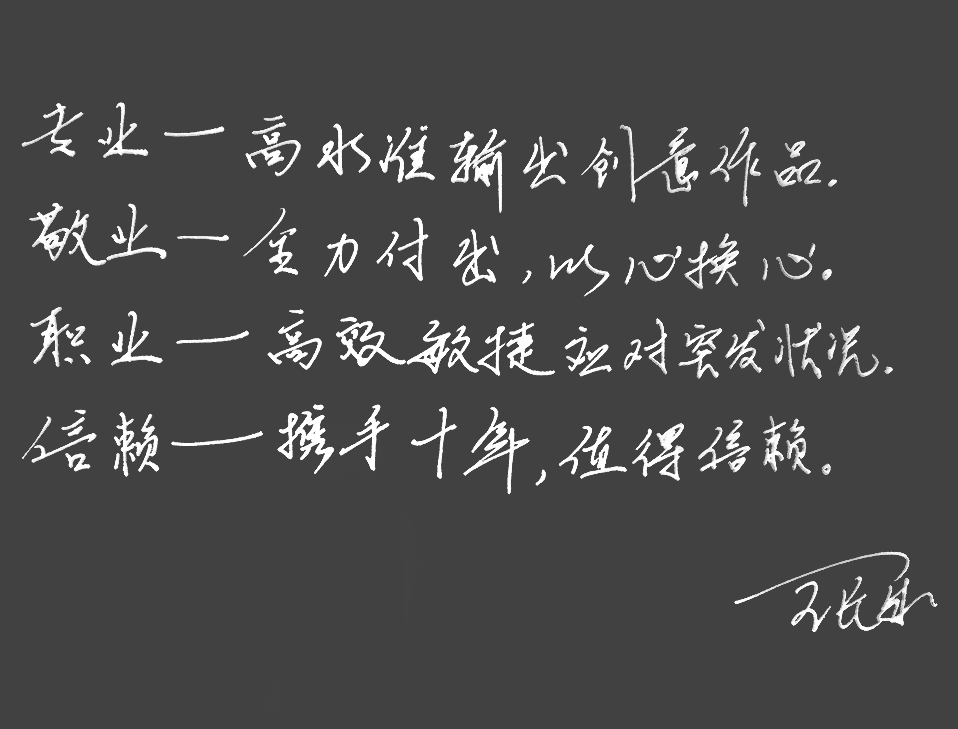 专业一高水准输出创意作品.
敬业一全力付出,以心换心。
职业一高效敏捷应对突发状况.
信赖一携手十年,值得信赖。